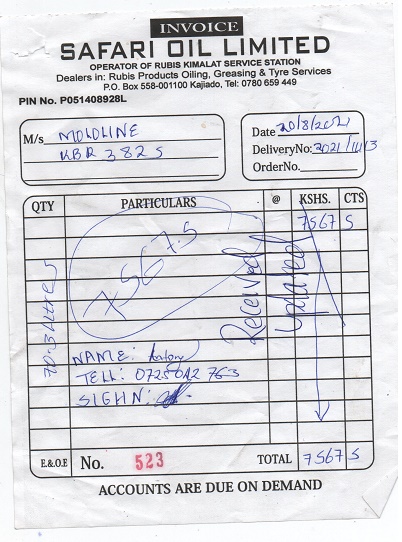 INVOICE
SAFARI OIL LIMITED
OPERATOR OF RUBIS KIMALAT SERVICE STATION
Dealers in: Rubis Products Oiling, Greasing & Tyre Services
P.O. Box 558-001100 Kajiado, Tel: 0780 659 449
PIN No. P051408928L
M/s MOLOLINE
KBR 382 S
Date 20/8/2021
Delivery No: 2021/11/13
Order No.
QTY PARTICULARS @ KSHS. CTS
7567 5
7567.5
70.3 Litres
Received
Updated
NAME:
TELL: 0725 042 763
SIGHN:
E.&O.E No. 523 TOTAL 7567 5
ACCOUNTS ARE DUE ON DEMAND